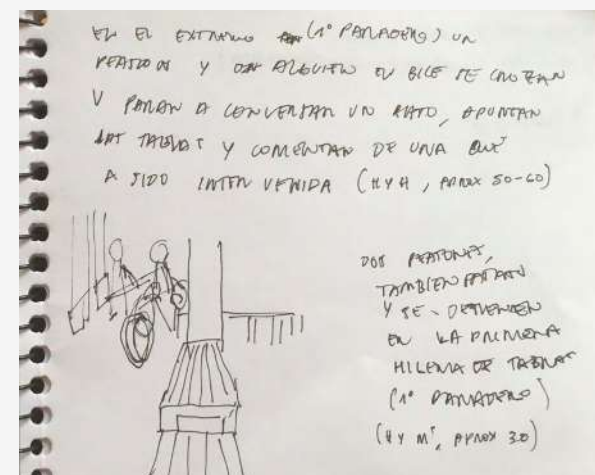 EN EL EXTREMO (1º PARADERO) UN
PEATON Y ALGUIEN EN BICE SE CRUZAN
Y PARAN A CONVERSAR UN RATO, APUNTAN
LAS TABLAS Y COMENTAN DE UNA QUE
A SIDO INTERVENIDA (HYH, APROX 50-60)
DOS PEATONES,
TAMBIEN PARAN
Y SE DETIENEN
EN LA PRIMERA
HILERA DE TABLAS
(1º PARADERO)
(HY M, APROX 30)